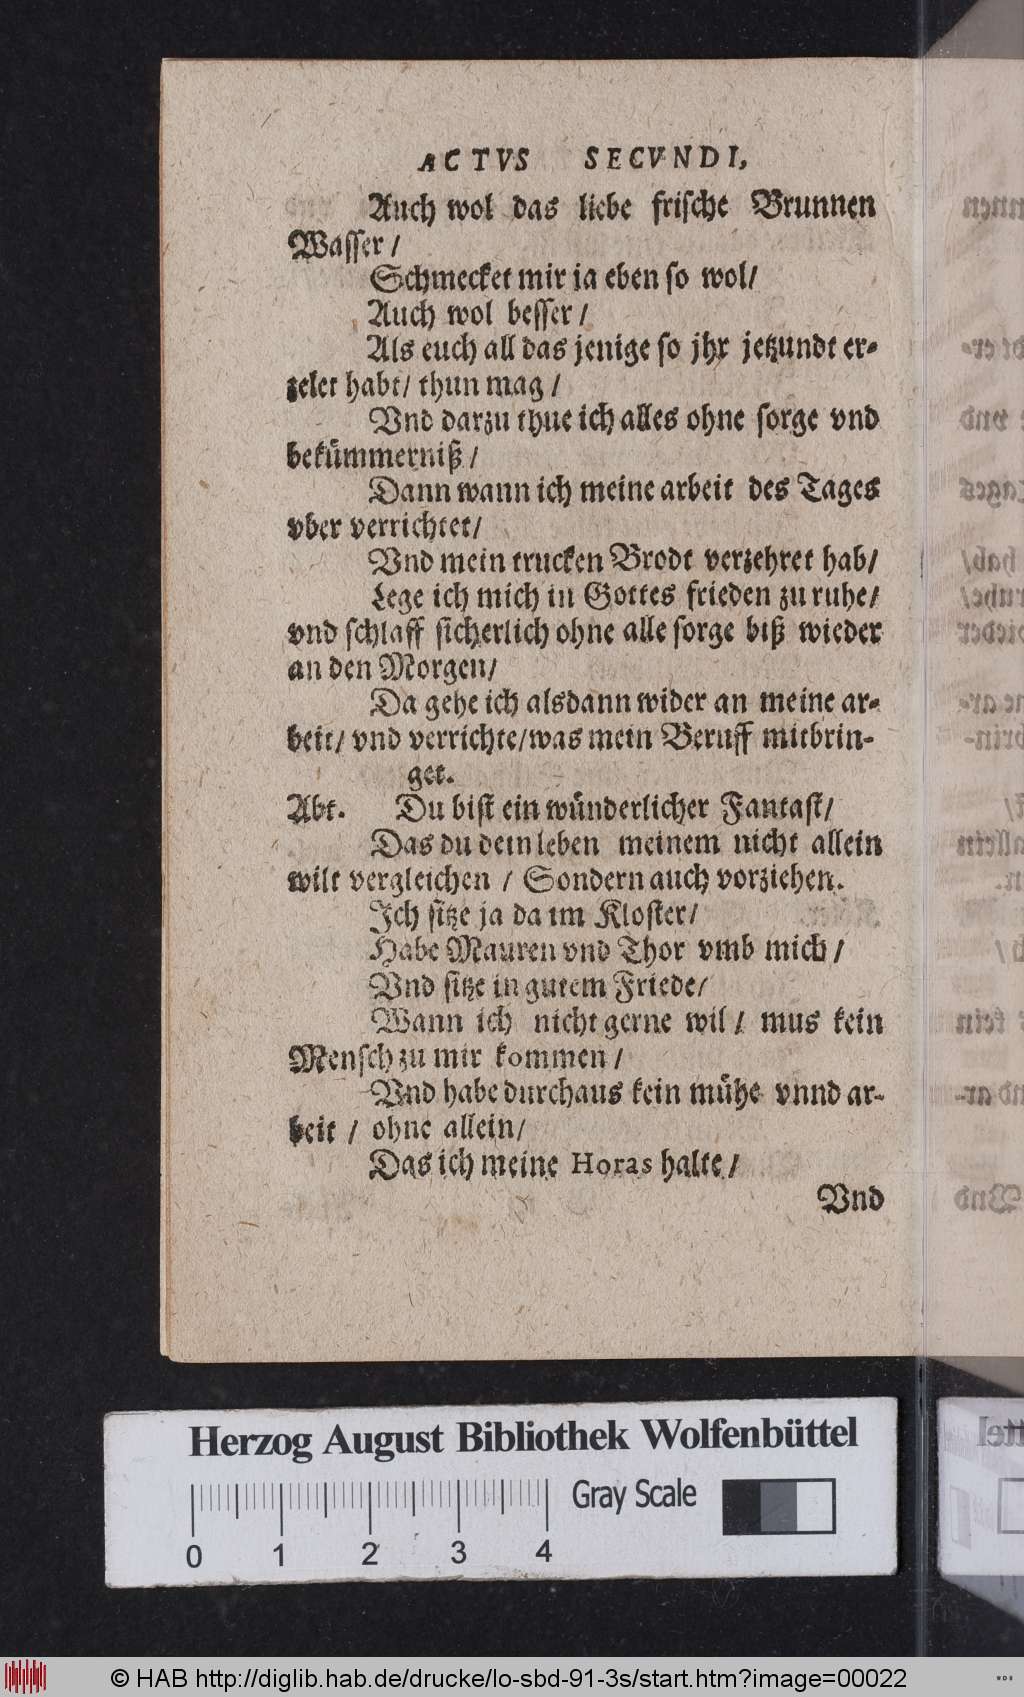 ACTVS SECVNDI,
Auch wol das liebe frische Brunnen
Wasser /
Schmecket mir ja eben so wol/
Auch wol besser /
Als euch all das jenige so jhr jetzundt er-
zelet habt/ thun mag /
Vnd darzu thue ich alles ohne sorge vnd
bekümmerniß /
Dann wann ich meine arbeit des Tages
vber verrichtet/
Vnd mein trucken Brodt verzehret hab/
Lege ich mich in Gottes frieden zu ruhe/
vnd schlaff sicherlich ohne alle sorge biß wieder
an den Morgen/
Da gehe ich alsdann wider an meine ar-
beit/ vnd verrichte/was mein Beruff mitbrin-
get.
Abt. Du bist ein wünderlicher Fantast/
Das du dein leben meinem nicht allein
wilt vergleichen / Sondern auch vorziehen.
Ich sitze ja da im Kloster/
Habe Mauren vnd Thor vmb mich /
Vnd sitze in gutem Friede/
Wann ich nicht gerne wil / mus kein
Mensch zu mir kommen /
Vnd habe durchaus kein mühe vnnd ar-
beit / ohne allein/
Das ich meine Horas halte /
Vnd
Herzog August Bibliothek Wolfenbüttel
Gray Scale
0 1 2 3 4
© HAB http://diglib.hab.de/drucke/lo-sbd-91-3s/start.htm?image=00022